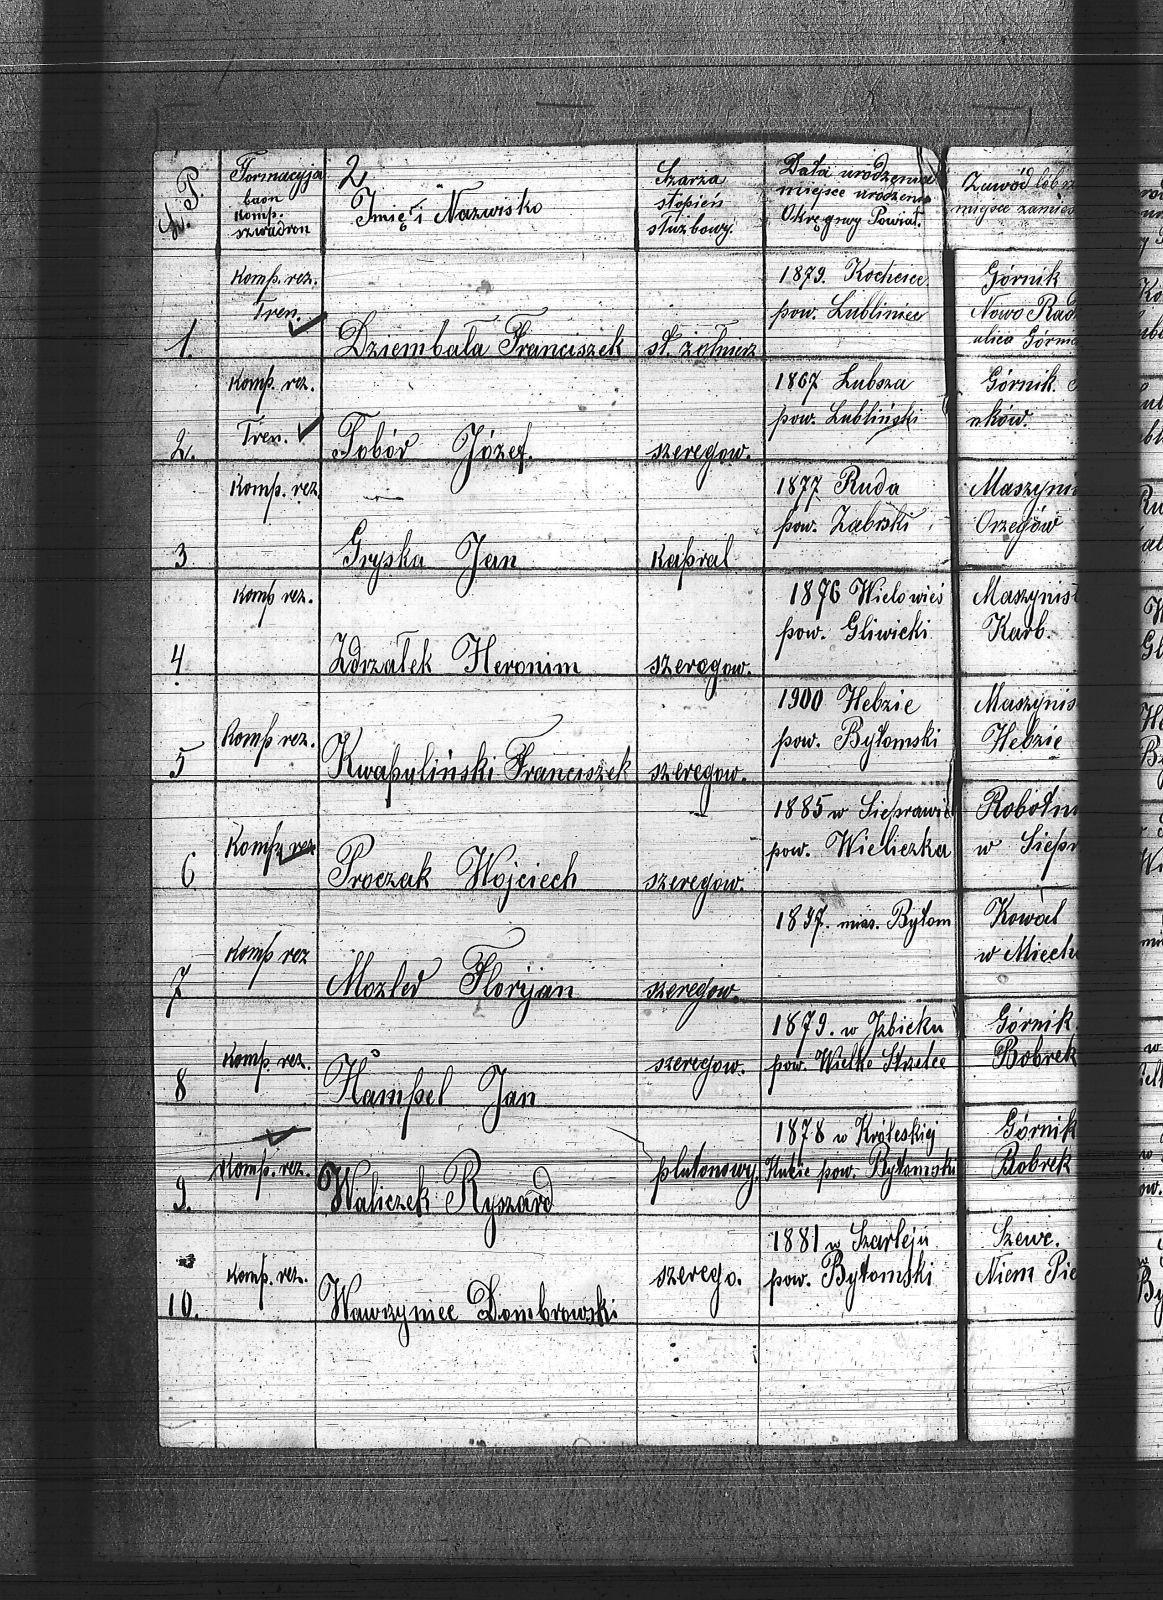 L. P.
Formacyja
baon
komp.
szwadron
2
Imię i Nazwisko
Szarza
stopień
służbowy.
Data urodzenia
miejsce urodzenia
Okręgowy Powiat.
Zawód lub
miejsce zamies
Komp. rez.
Tren.
1.
Dziembała Franciszek
st. żołnierz
1879. Kochcice
pow. Lubliniec
Górnik
Nowo Rad
ulica Górni
Komp. rez.
Tren.
2.
Tobór Józef.
szeregow.
1867 Lubsza
pow. Lubliński
Górnik
nków.
Komp. rez.
3
Gryska Jan
Kapral
1877 Ruda
pow. Zabrski
Maszynis
Orzegów
Komp rez.
4
Zdrzałek Heronim
szeregow.
1876 Wielowieś
pow. Gliwicki
Maszynist
Karb.
Komp rez.
5
Kwapuliński Franciszek
szeregow.
1900 Hebzie
pow. Bytomski
Maszynis
Hebzie
Komp. rez
6
Proczak Wojciech
szeregow.
1885 w Sieprawie
pow. Wieliczka
Robotni
w Siepr
Komp rez
7
Mozler Floryan
szeregow.
1897. mias. Bytom
Kowal
w Miech
Komp. rez.
8
Hampel Jan
szeregow.
1879. w Izbicku
pow. Wielke Strzelce
Górnik.
Bobrek
Komp. rez.
9.
Waliczek Ryszard
plutonowy.
1878 w Króleskij
Hucie pow. Bytomski
Górnik
Bobrek
Komp. rez.
10.
Wawrzyniec Dombrowski
szerego.
1881 w Szarleju
pow. Bytomski
Szewc.
Niem Pie